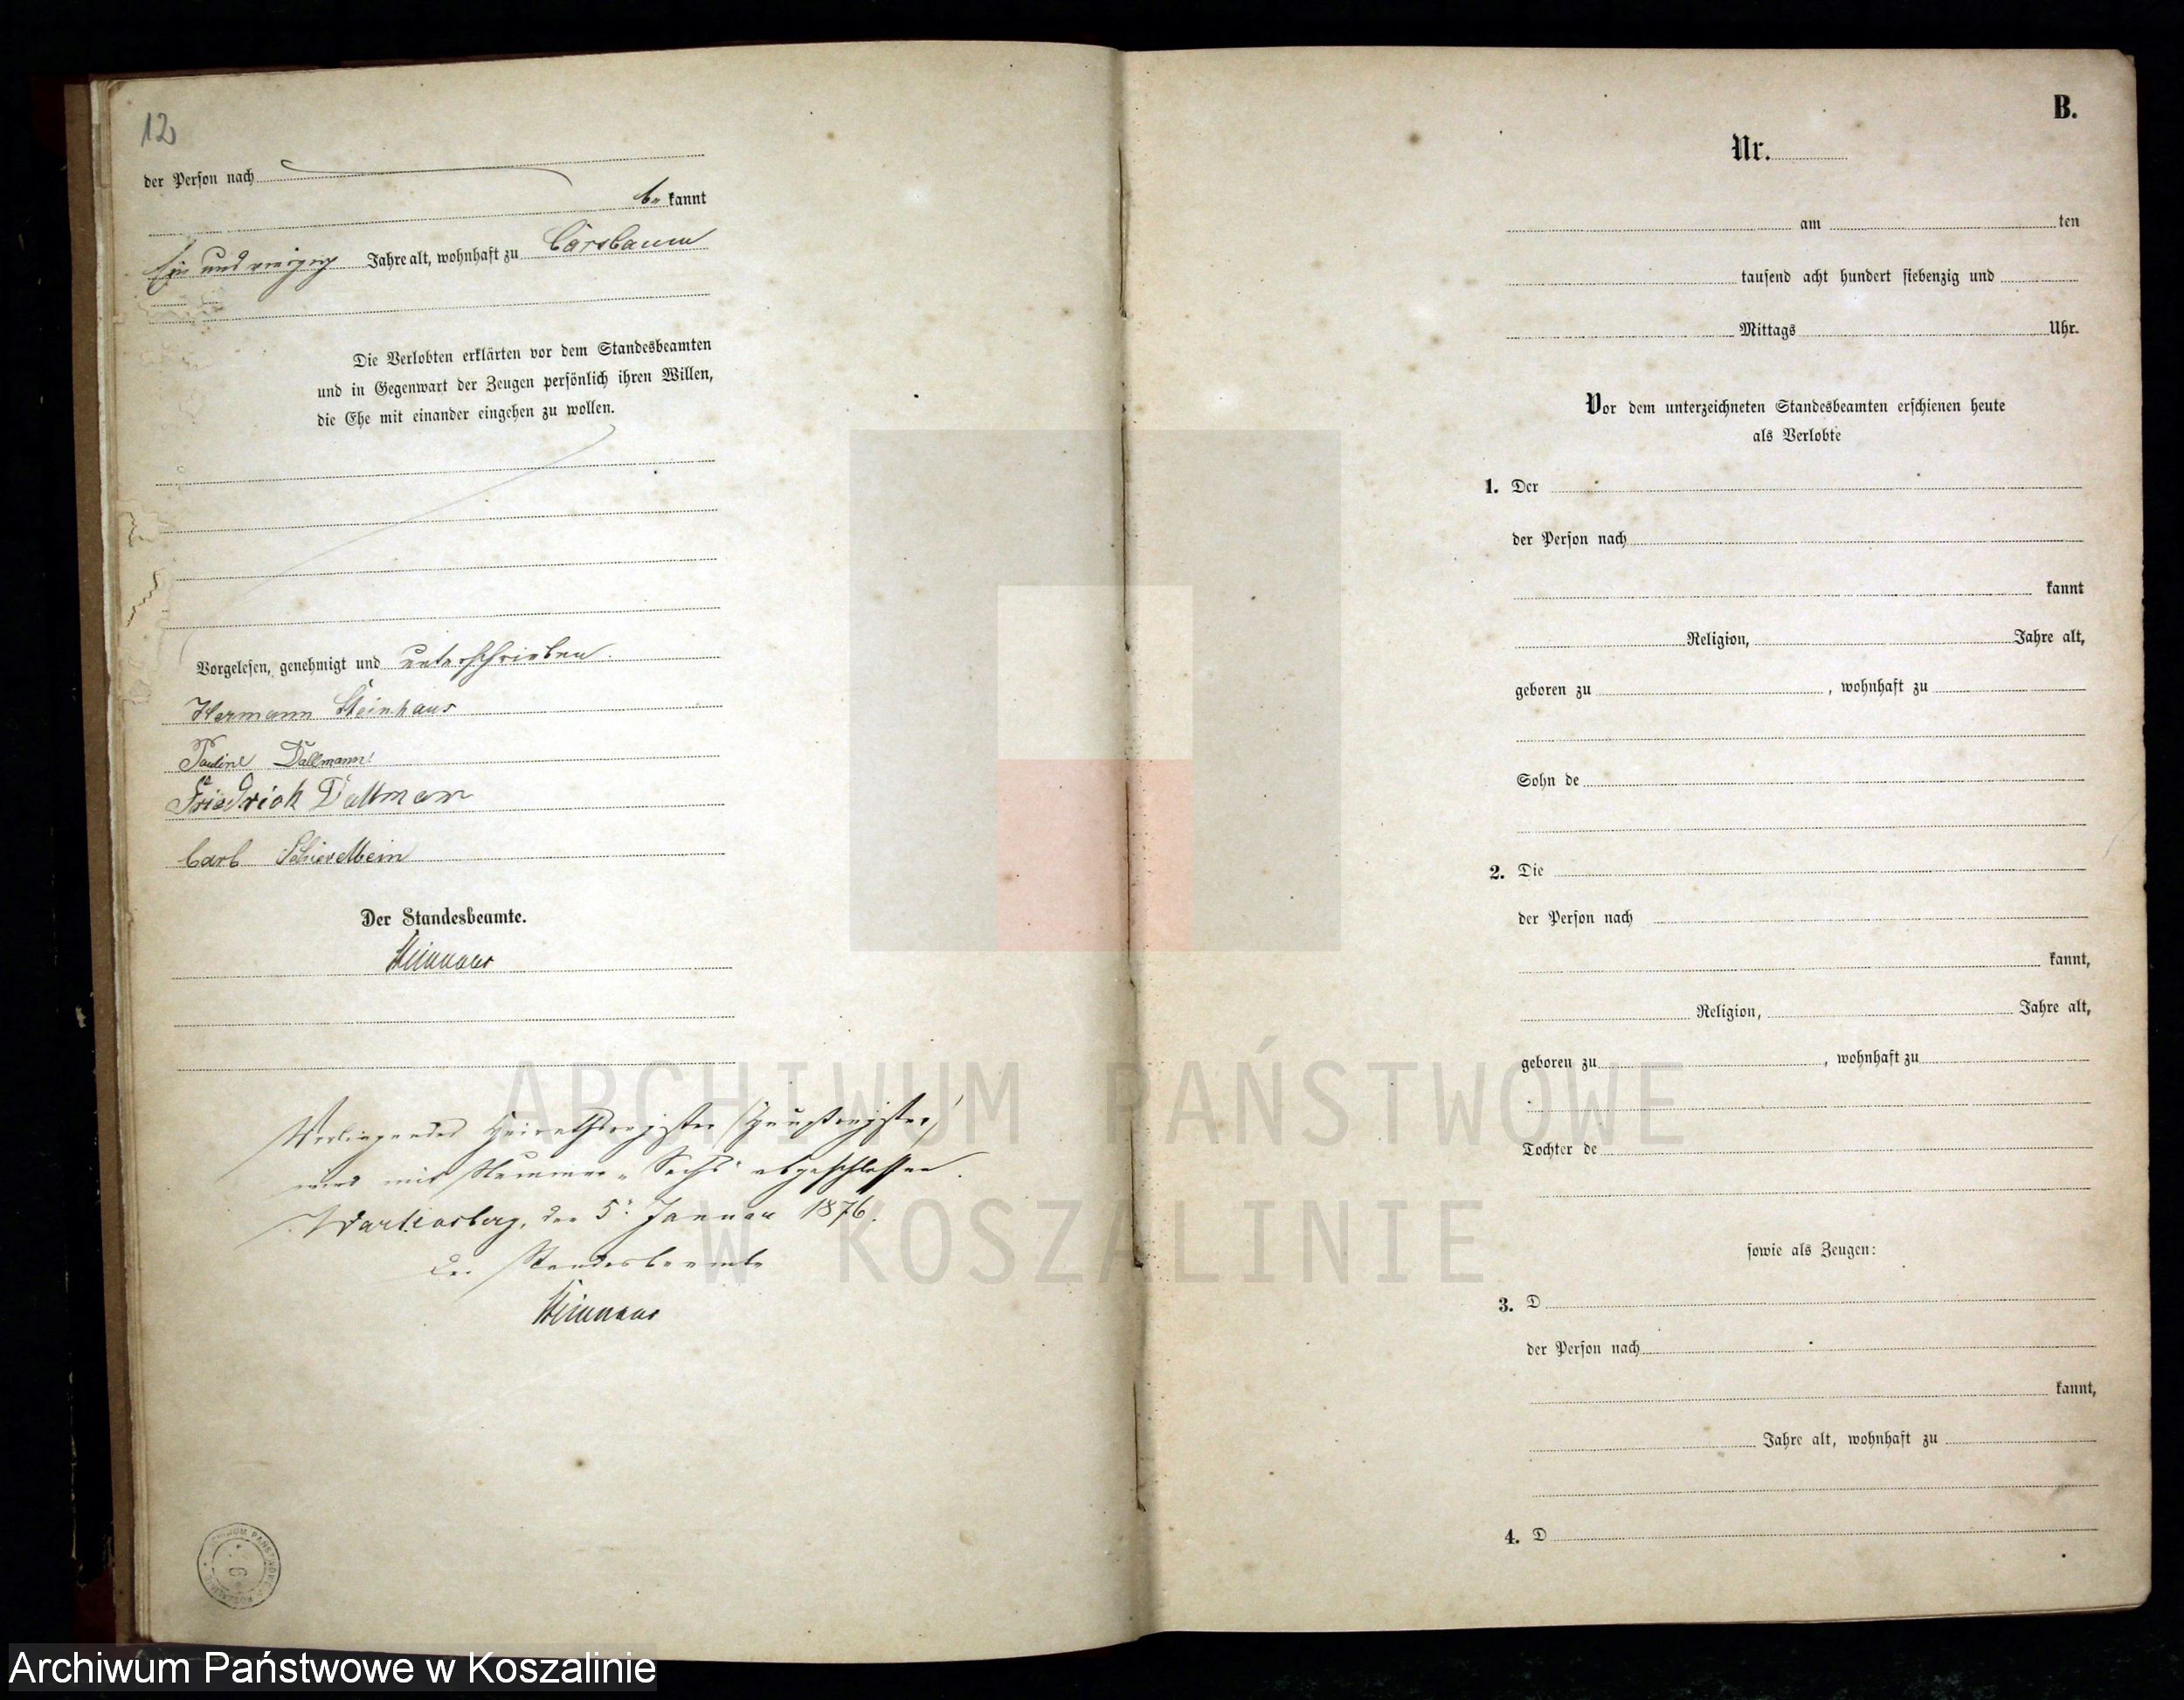 12
der Person nach
be kannt
Ein und vierzig Jahre alt, wohnhaft zu Carsbaum
Die Verlobten erklärten vor dem Standesbeamten
und in Gegenwart der Zeugen persönlich ihren Willen,
die Ehe mit einander eingehen zu wollen.
Vorgelesen, genehmigt und unterschrieben.
Hermann Steinhaus
Pauline Dallmann
Friedrich Dallman
Carl Schievelbein
Der Standesbeamte.
Vorliegendes Heirathsregister (Hauptregister)
wird mit Nummer „Sechs" abgeschlossen.
den 5. Januar 1876.
Der Standesbeamte
ARCHIWUM PAŃSTWOWE
W KOSZALINIE
B.
Nr.
am ten
tausend acht hundert siebenzig und
Mittags Uhr.
Vor dem unterzeichneten Standesbeamten erschienen heute
als Verlobte
1. Der
der Person nach
kannt
Religion, Jahre alt,
geboren zu , wohnhaft zu
Sohn de
2. Die
der Person nach
kannt,
Religion, Jahre alt,
geboren zu , wohnhaft zu
Tochter de
sowie als Zeugen:
3. D
der Person nach
kannt,
Jahre alt, wohnhaft zu
4. D
Archiwum Państwowe w Koszalinie